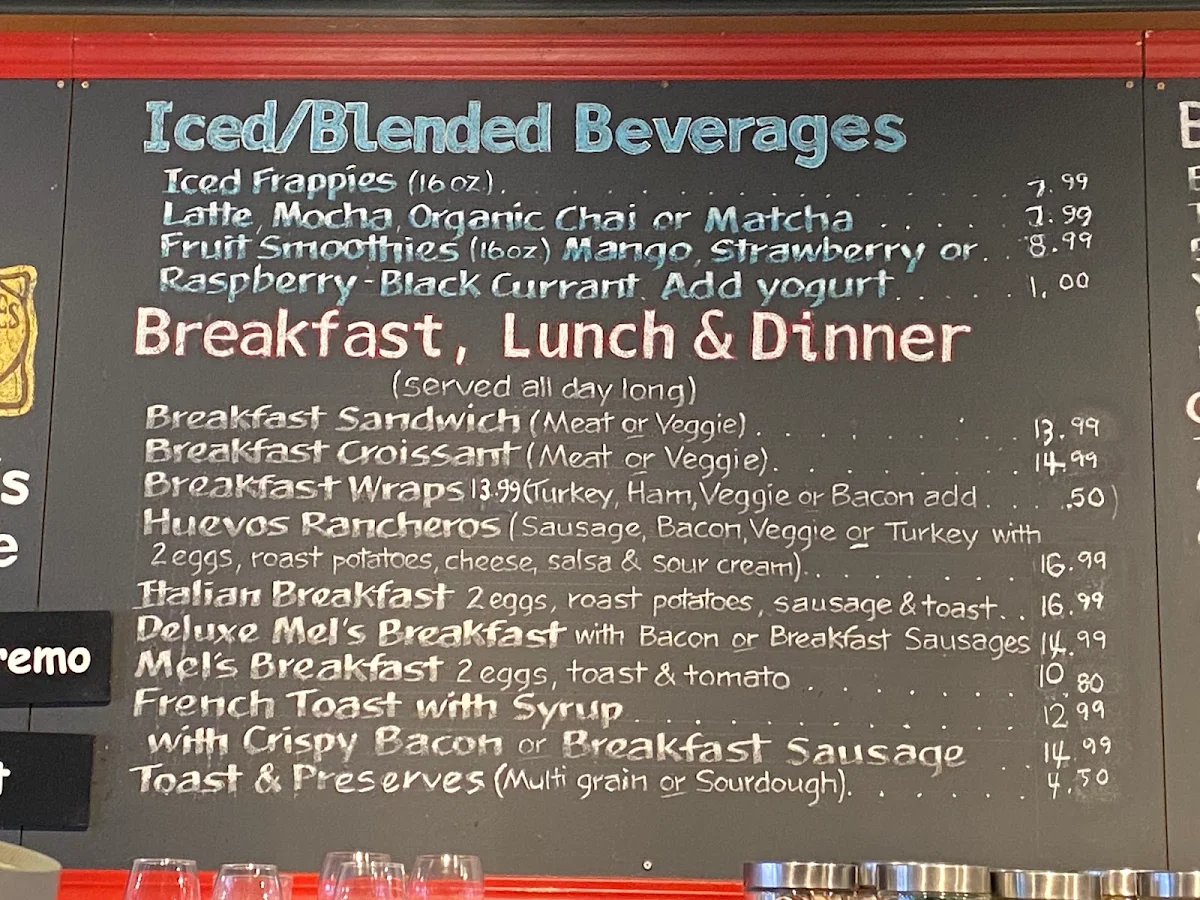 Iced/Blended Beverages
Iced Frappies (16oz). . . . . . . . . . . . . . . . 7.99
Latte, Mocha, Organic Chai or Matcha . . . . . 7.99
Fruit Smoothies (16oz) Mango, Strawberry or . . 8.99
Raspberry-Black Currant. Add yogurt. . . . . 1.00
Breakfast, Lunch & Dinner
(served all day long)
Breakfast Sandwich (Meat or Veggie) . . . . . . . . 13.99
Breakfast Croissant (Meat or Veggie). . . . . . . . 14.99
Breakfast Wraps 13.99 (Turkey, Ham, Veggie or Bacon add . . . .50)
Huevos Rancheros (Sausage, Bacon, Veggie or Turkey with
2 eggs, roast potatoes, cheese, salsa & sour cream). . . . . . . . 16.99
Italian Breakfast 2 eggs, roast potatoes, sausage & toast. . . 16.99
Deluxe Mel's Breakfast with Bacon or Breakfast Sausages 14.99
Mel's Breakfast 2 eggs, toast & tomato . . . . . . . 10.80
French Toast with Syrup. . . . . . . . . . . . 12.99
with Crispy Bacon or Breakfast Sausage . . 14.99
Toast & Preserves (Multi grain or Sourdough). . . . . . . 4.50